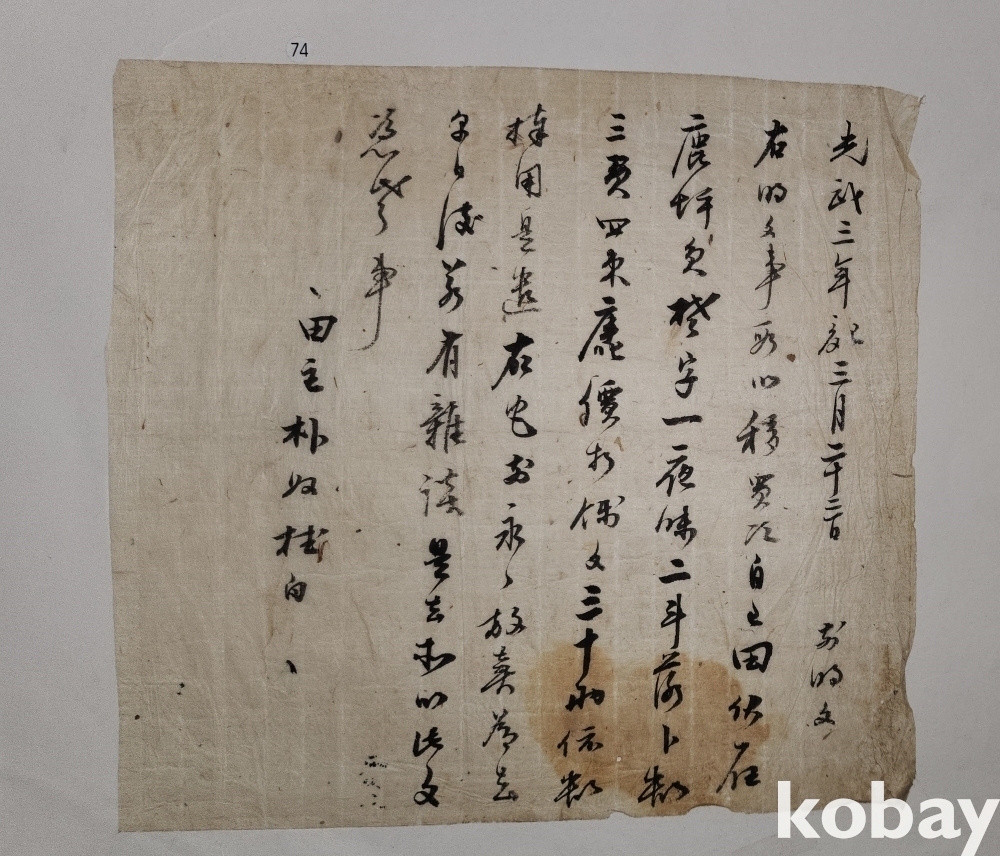 74
光武三年 三月二十三日 前明文
右明文事段以移買次自己田伏在
鹿坪員 字一夜味二斗落卜数
三負四束廛價折價文三十兩依數
捧用是遣右宅前永永放賣爲去
乎日後若有雜談是去等以此文
憑考事
田主朴奴 白
kobay